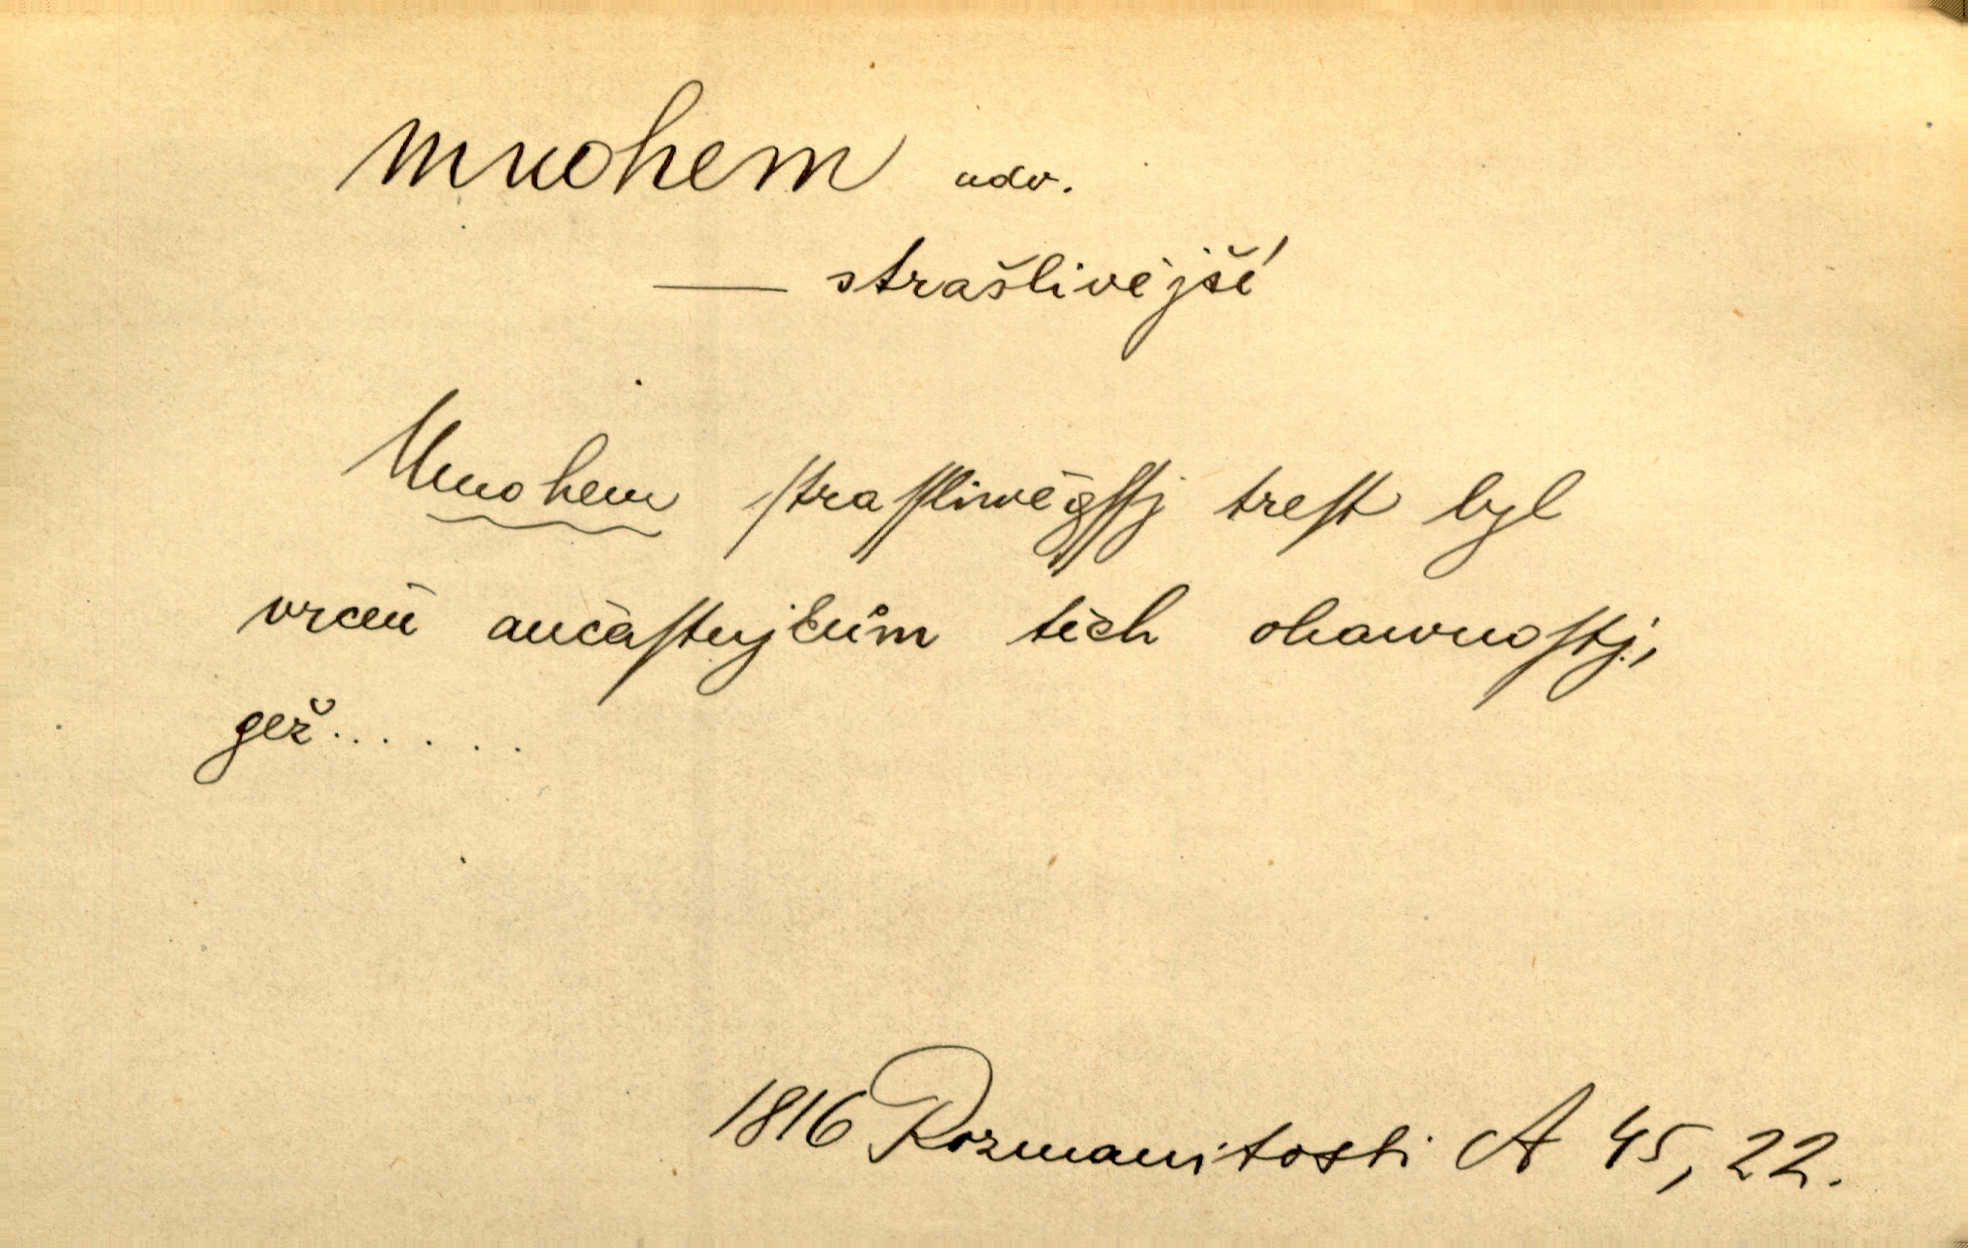 mnohem adv.
— strašlivější
Mnohem ſtraſſliwěgſſj treſt byl
vrčen aučaſtnjkům těch ohawnoſtj,
gež......
1816 Rozmanitosti A 45, 22.